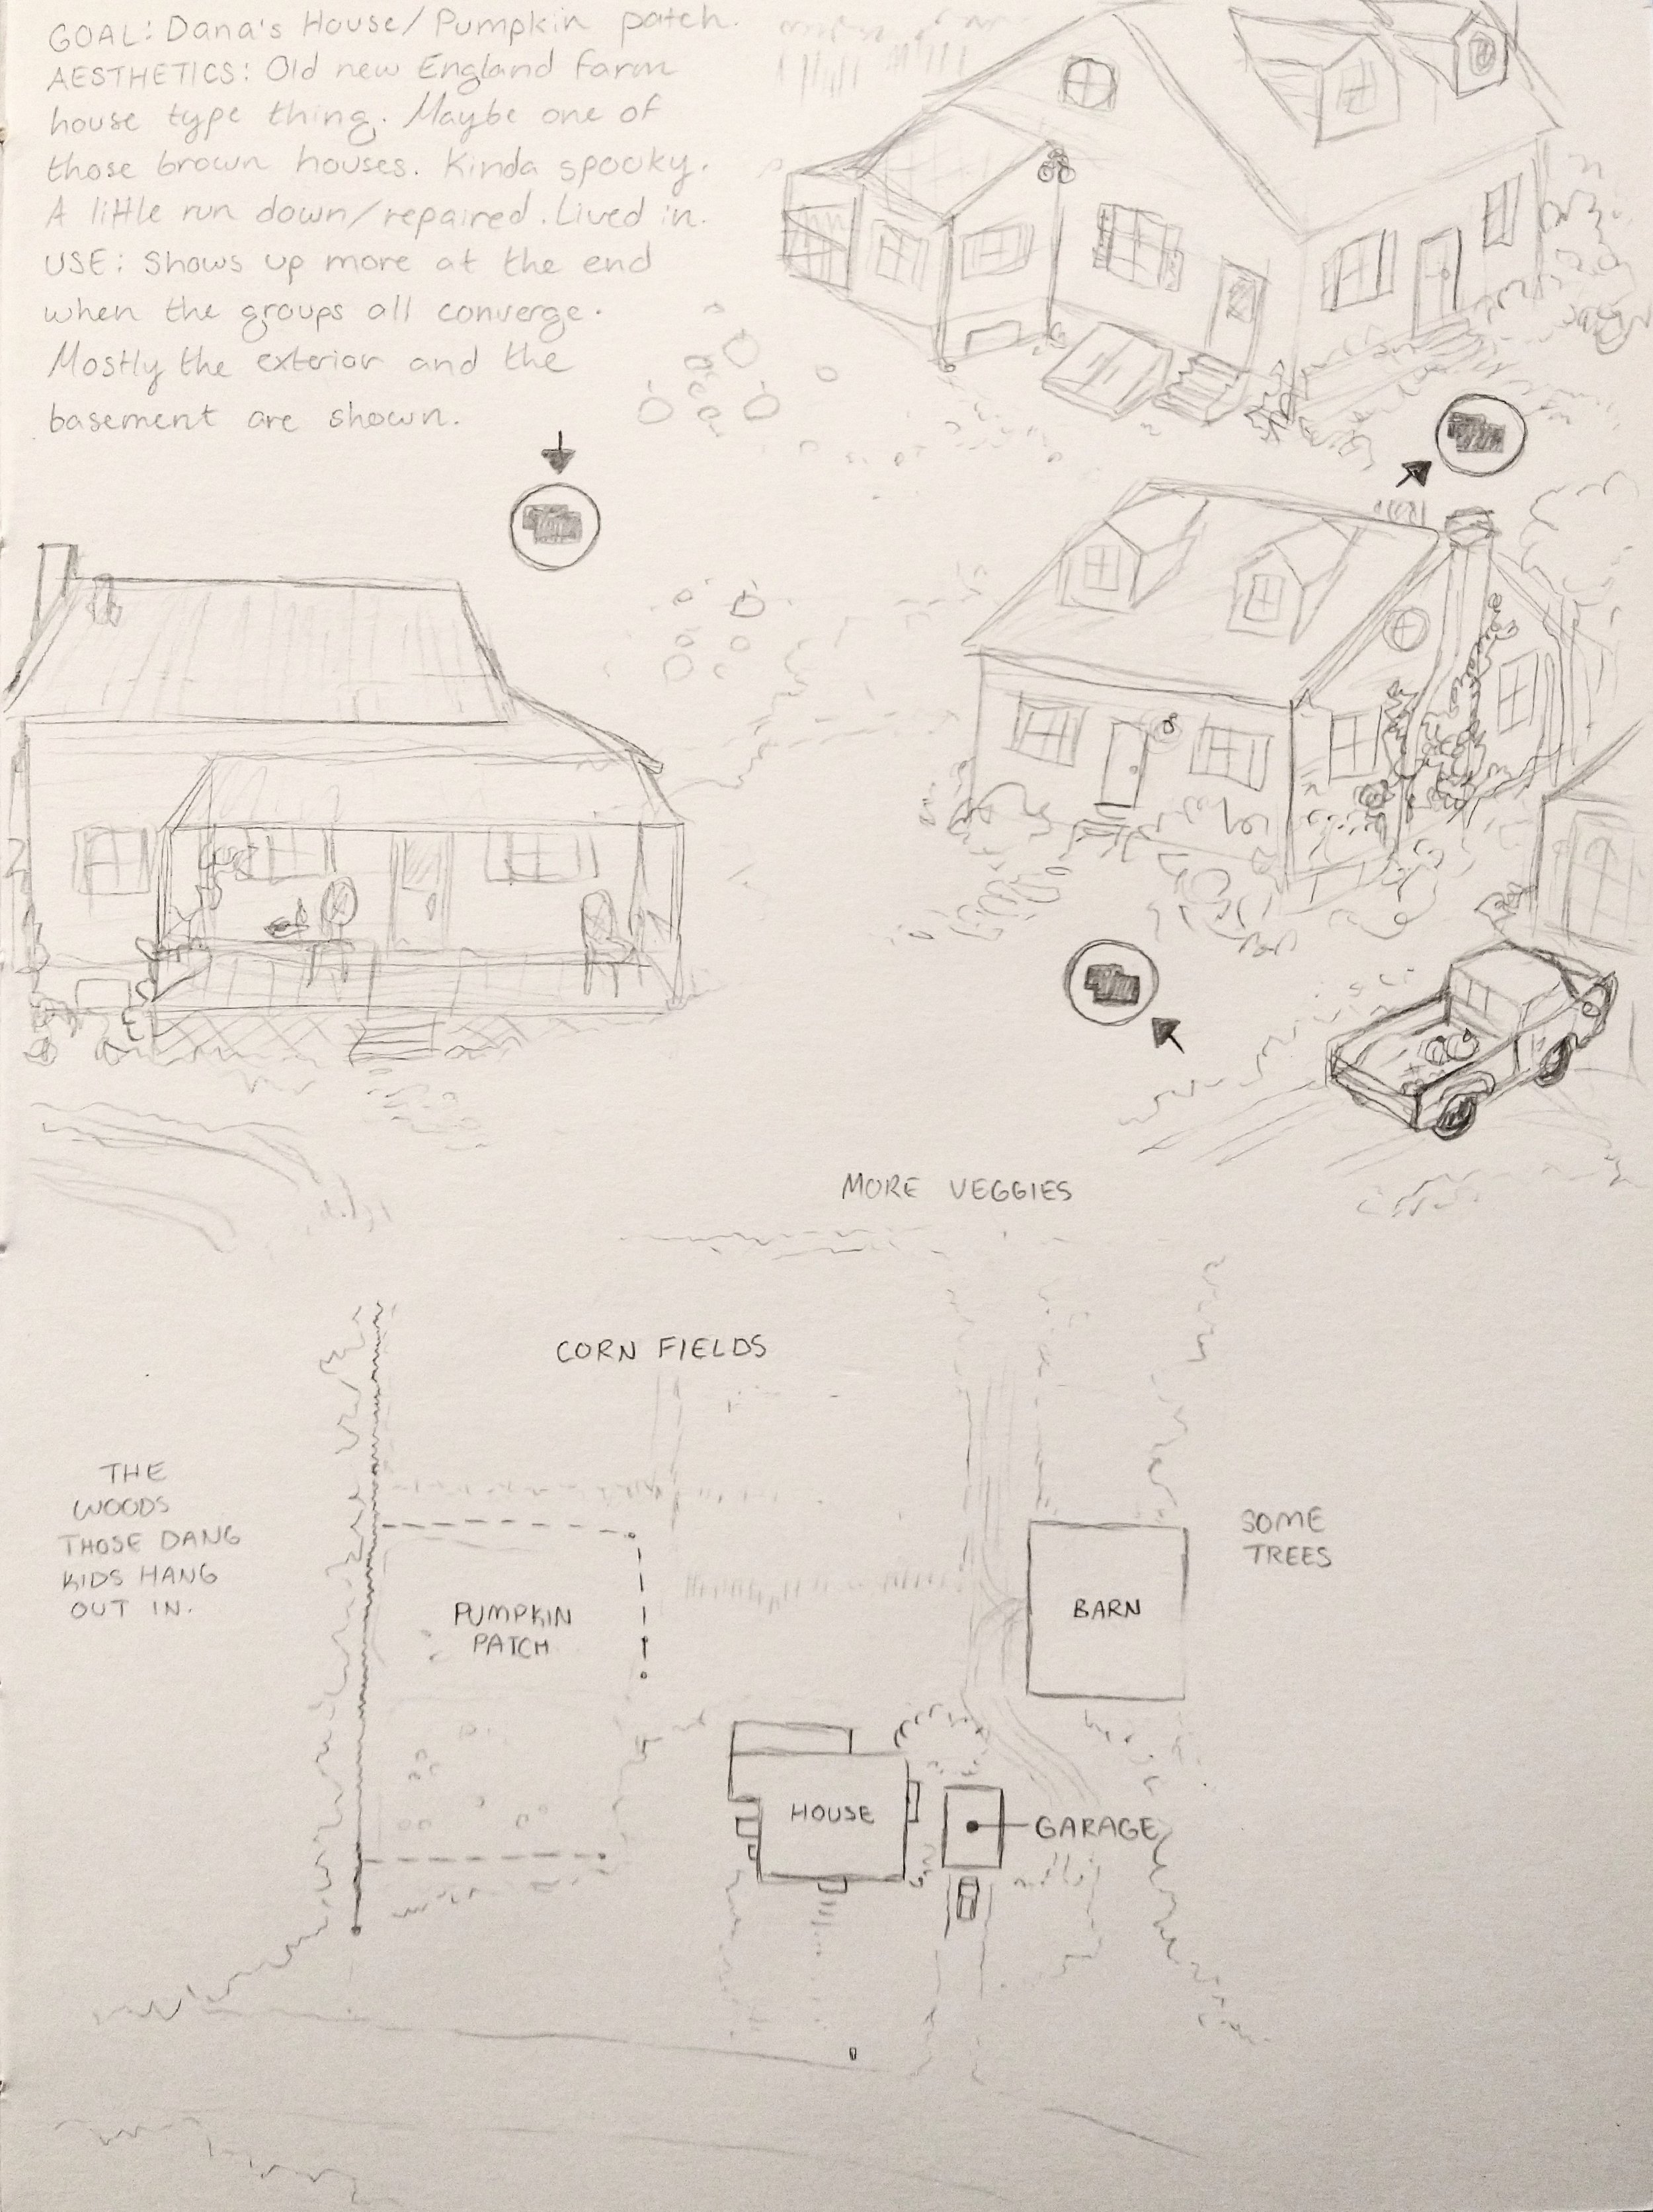 GOAL: Dana's House/Pumpkin patch.
AESTHETICS: Old new England farm
house type thing. Maybe one of
those brown houses. Kinda spooky.
A little run down/repaired. Lived in.
USE: Shows up more at the end
when the groups all converge.
Mostly the exterior and the
basement are shown.
MORE VEGGIES
CORN FIELDS
THE
WOODS
THOSE DANG
KIDS HANG
OUT IN.
SOME
TREES
PUMPKIN
PATCH
BARN
HOUSE
GARAGE